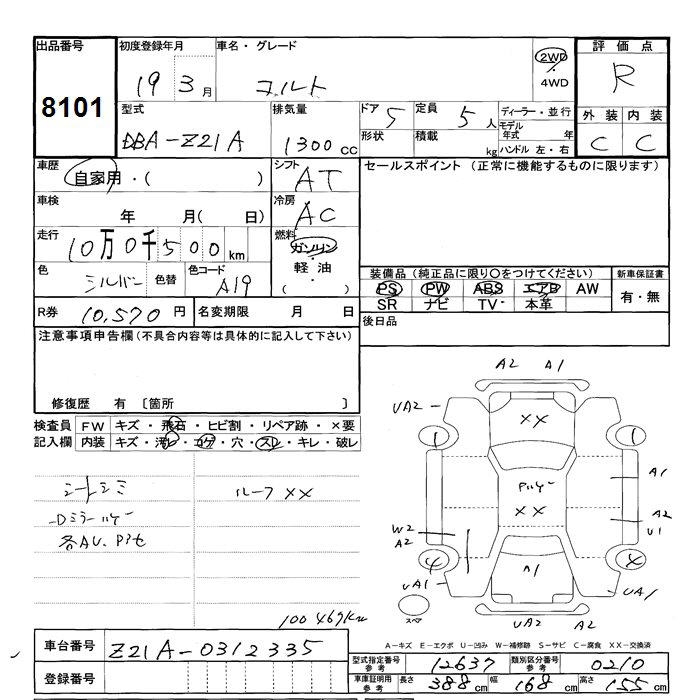 出品番号
8101
初度登録年月
19 3月
車名・グレード
コルト
2WD
・
4WD
評価点
R
外装 内装
C C
型式
DBA-Z21A
排気量
1300cc
ドア 5
形状
定員 5人
積載 kg
ディーラー・並行
モデル年式 年
ハンドル 左・右
車歴
自家用・( )
シフト
AT
セールスポイント (正常に機能するものに限ります)
車検
年 月( 日)
冷房
AC
走行
10万0千500km
燃料
ガソリン
軽油
( )
色
シルバー
色替
色コード
A19
装備品(純正品に限り○をつけてください)
PS PW ABS エアB AW
SR ナビ TV・ 本革
新車保証書
有・無
R券 10,570円
名変期限 月 日
後日品
注意事項申告欄(不具合内容等は具体的に記入して下さい)
修復歴 有 〔箇所 〕
検査員
記入欄
FW キズ・飛石・ヒビ割・リペア跡・×要
内装 キズ・汚レ・コゲ・穴・スレ・キレ・破レ
シートシミ
ルーフ××
Dミラー
各AU、
100469Km
A2 A1
UA2
××
1 1
A1
××
A2
U1
W2
A2
4 4
A1
UA1
UA1
スペア
UA2 A2
車台番号 Z21A-0312335
登録番号
A-キズ E-エクボ U-凹み W-補修跡 S-サビ C-腐食 XX-交換済
型式指定番号 参考 12637
類別区分番号 参考 0210
車庫証明用 参考 長さ 388cm 幅 168cm 高さ 155cm